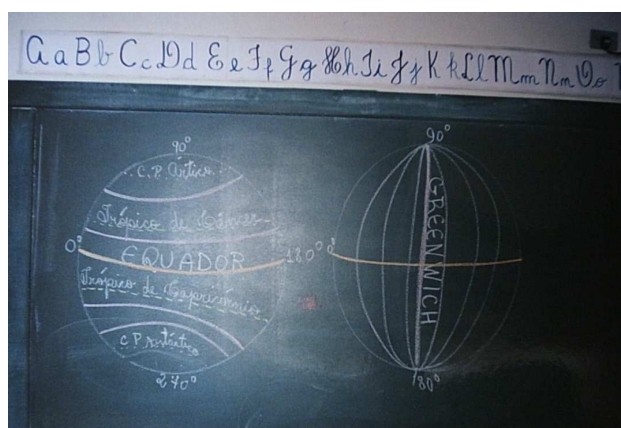 Aa Bb Cc Dd Ee Ff Gg Hh Ii Jj Kk Ll Mm Nn Oo
90°
C. P. Ártico
Trópico de Câncer
0° EQUADOR 180°
Trópico de Capricórnio
C. P. Antártico
270°
90°
GREENWICH
0°
180°